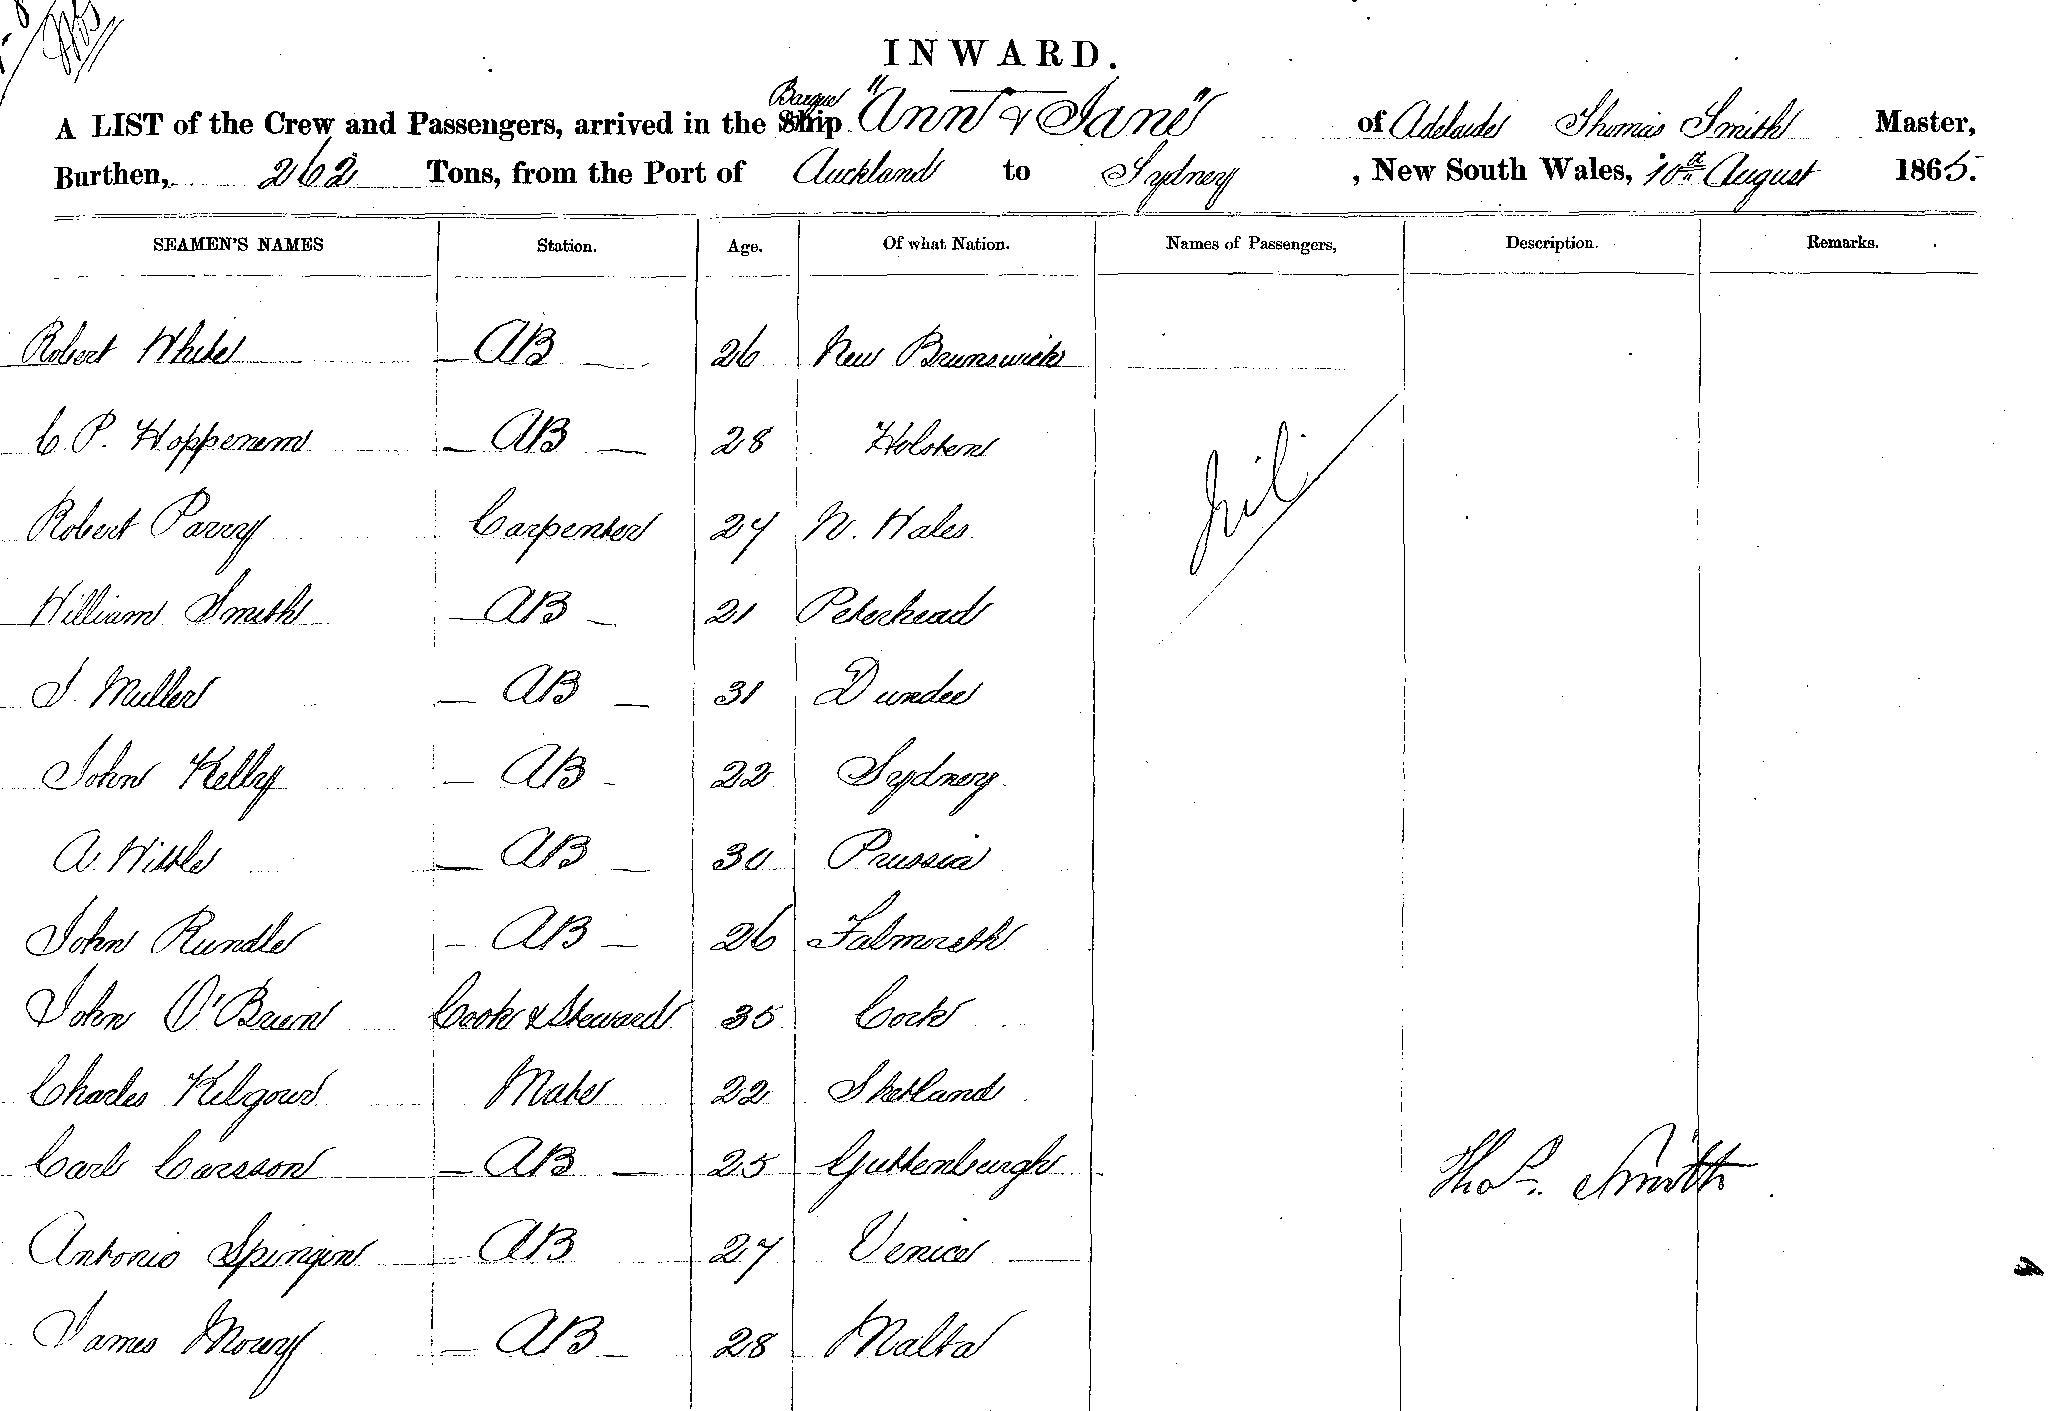 INWARD.
A LIST of the Crew and Passengers, arrived in the Ship Barque "Ann & Jane" of Adelaide Thomas Smith Master,
Burthen, 262 Tons, from the Port of Auckland to Sydney, New South Wales, 10th August 1865.
SEAMEN'S NAMES Station. Age. Of what Nation. Names of Passengers, Description. Remarks.
Robert White AB 26 New Brunswick
C. P. AB 28 Holsten
nil
Robert Parry Carpenter 24 N. Wales
William Smith AB 21 Peterhead
J. Muller AB 31 Dundee
John Kelly AB 22 Sydney
A. AB 30 Prussia
John Rundle AB 26 Falmouth
John O'Brien Cook & Steward 35 Cork
Charles Kilgour Mate 22 Shetland
Carl Carsson AB 25 Guttenburgh
Thos. Smith
Antonio AB 27 Venice
James Mowy AB 28 Malta